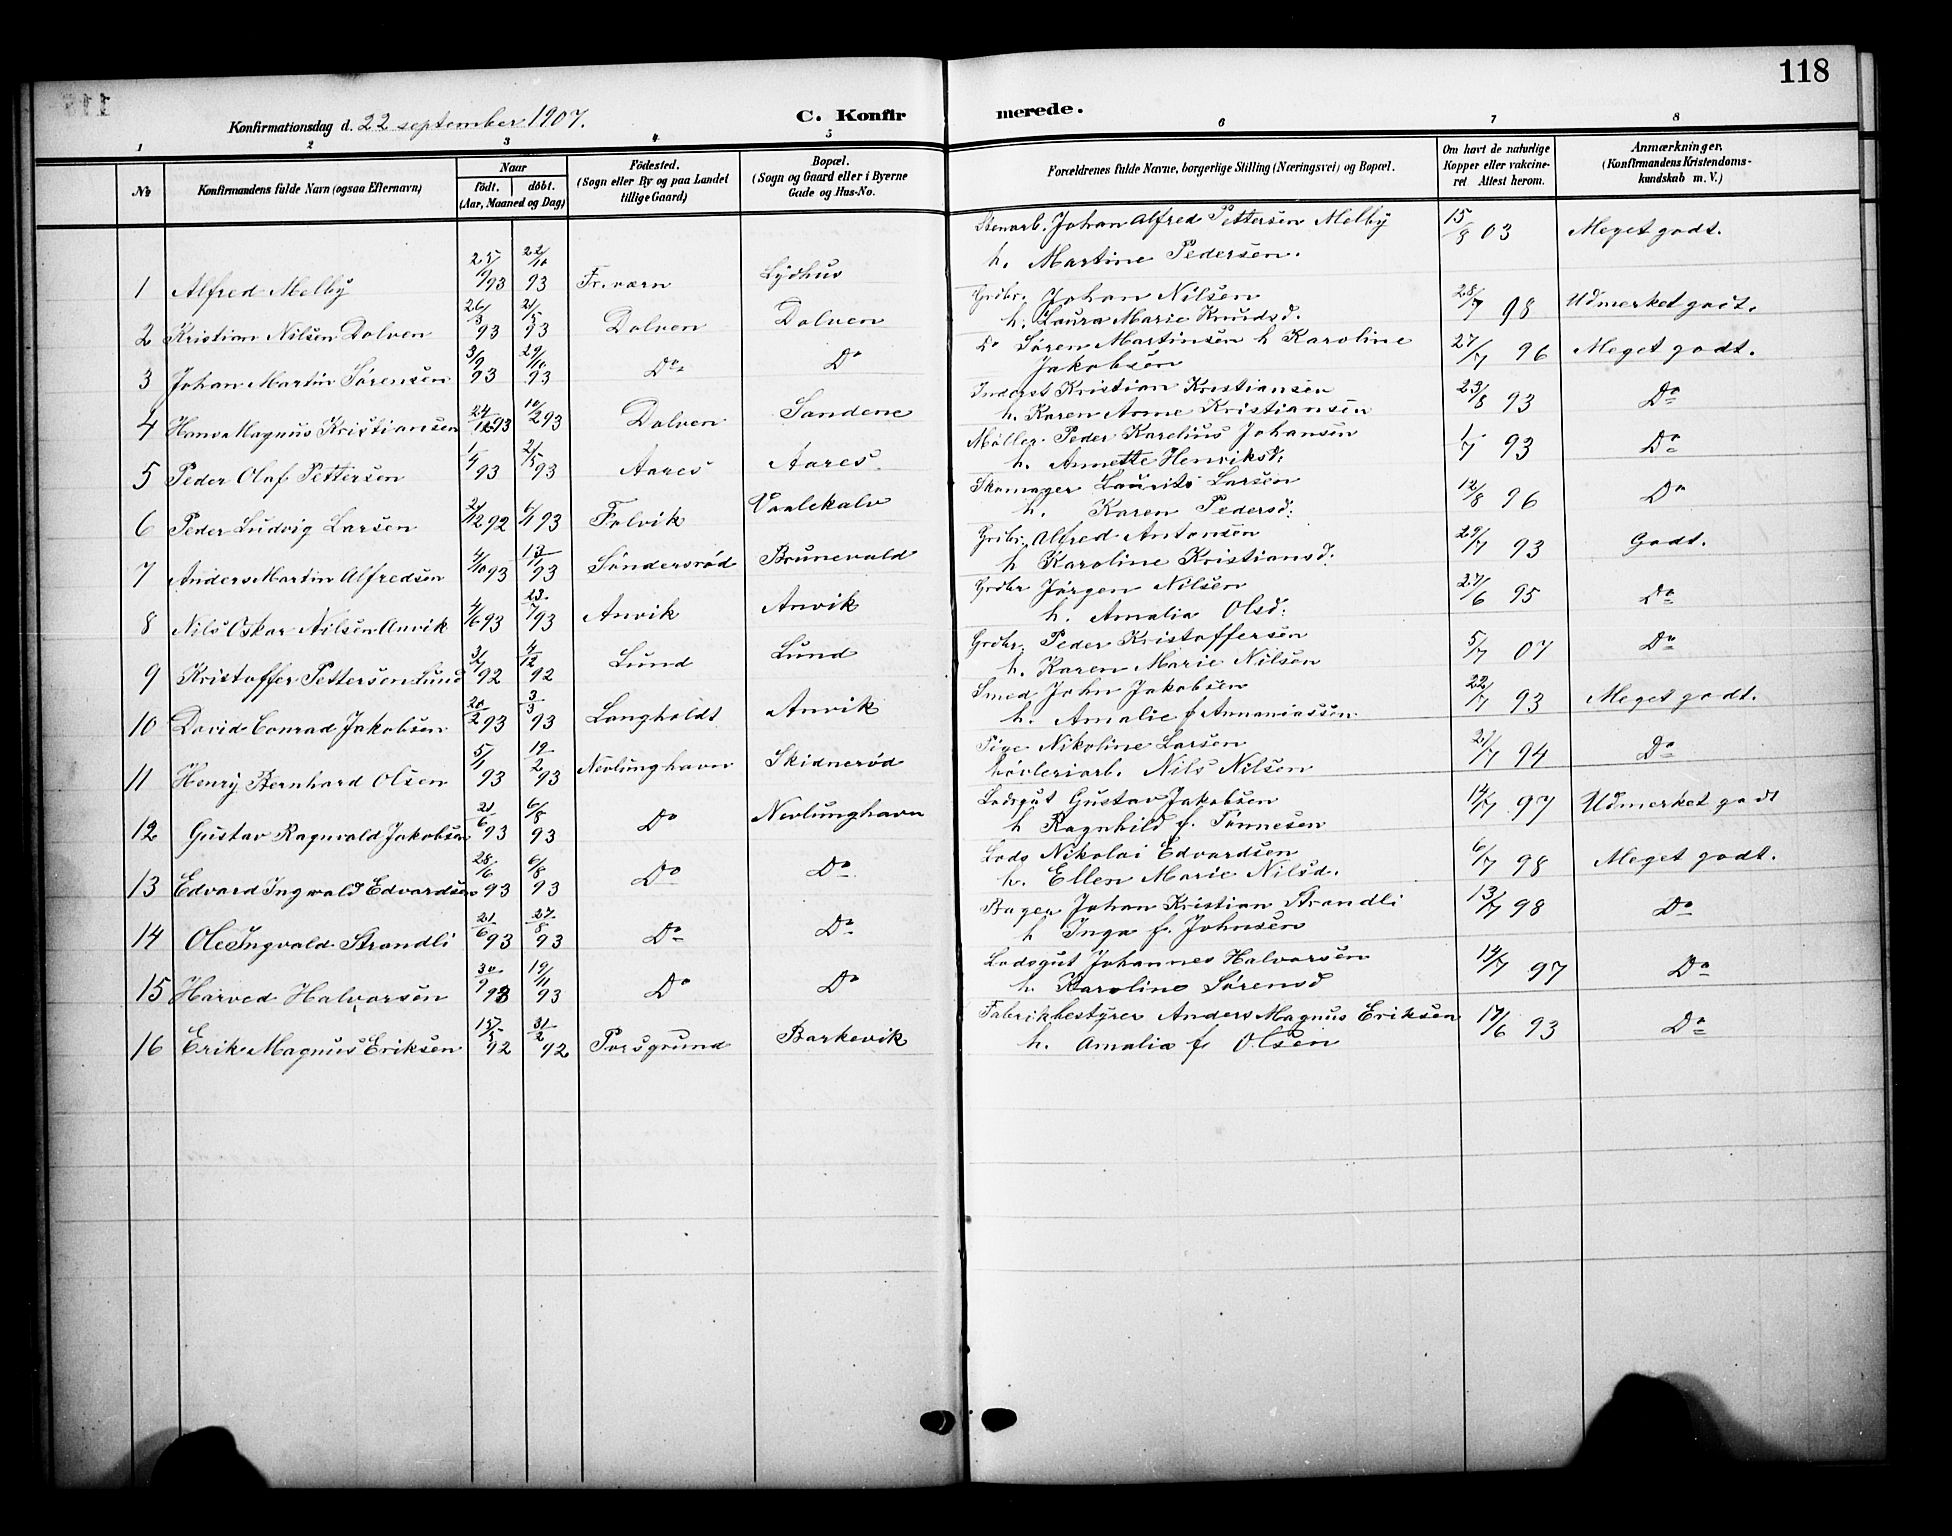 118
Konfirmationsdag d. 22 september 1907.
C. Konfirmerede.
1 2 3 4 5 6 7 8
No
Konfirmandens fulde Navn (ogsaa Efternavn)
Naar
födt. döbt.
(Aar, Maaned og Dag)
Födested.
(Sogn eller By og paa Landet
tillige Gaard)
Bopæl.
(Sogn og Gaard eller i Byerne
Gade og Hus-No.
Forældrenes fulde Navne, borgerlige Stilling (Næringsvei) og Bopæl.
Om havt de naturlige
Kopper eller vakcine-
ret Attest herom.
Anmærkninger.
(Konfirmandens Kristendoms-
kundskab m. V.)
1 Alfred Melby 25/9 93 22/10 93 Fr.værn Lydhus Stenarb. Johan Alfred Pettersen Melby
h. Martine Pedersen. 15/8 03 Meget godt.
2 Kristian Nilsen Dolven 26/3 93 21/5 93 Dolven Dolven Grdbr. Johan Nilsen
h. Laura Marie Knudsd. 28/7 98 Udmerket godt.
3 Johan Martin Sørensen 3/9 93 29/10 93 Do Do Do Søren Martinsen h Karoline
Jakobsen 27/7 96 Meget godt.
4 Hans Magnus Kristiansen 24/12 93 10/2 93 Dolven Sandene Inderst Kristian Kristiansen
h. Karen Anne Kristiansen 23/8 93 Do
5 Peder Olaf Pettersen 1/4 93 21/5 93 Aares Aares. Møller Peder Karelius Johansen
h. Annette Henriksd: 1/7 93 Do
6 Peder Ludvig Larsen 2/12 92 6/1 93 Folvik Vaalekalv Skomager Laurits Larsen
h. Karen Pedersd: 12/8 96 Do
7 Anders Martin Alfredsen 4/10 93 13/11 93 Søndersrød Brunevald Grdbr. Alfred Antonsen
h Karoline Kristiansd: 29/7 93 Godt.
8 Nils Oskar Nilsen Anvik 4/6 93 23/7 93 Anvik Anvik Grdbr Jørgen Nilsen
h. Amalia Olsd: 27/6 95 Do
9 Kristoffer Pettersen Lund 3/7 92 4/12 92 Lund Lund Grdbr. Peder Kristoffersen
h. Karen Marie Nilsen 5/7 07 Do
10 David Conrad Jakobsen 20/2 93 3/3 93 Langholdt Anvik Smed John Jakobsen
h. Amalie f Annaniassen 22/7 93 Meget godt.
11 Henry Bernhard Olsen 5/1 93 12/2 93 Nevlunghavn Skidnerød Pige Nikoline Larsen
høvleriarb. Nils Nilsen 21/7 94 Do
12 Gustav Ragnvald Jakobsen 21/6 93 6/8 93 Do Nevlunghavn Lodsgut Gustav Jakobsen
h Ragnhild f. Tønnesen 14/7 97 Udmerket godt
13 Edvard Ingwald Edvardsen 28/6 93 6/8 93 Do Do Lods Nikolai Edvardsen
h. Ellen Marie Nilsd. 6/7 98 Meget godt.
14 Ole Ingvald Strandli 21/6 93 27/8 93 Do Do Bager Johan Kristian Strandli
h Inga f. Johnsen 13/7 98 Do
15 Harved Halvorsen 30/9 93 19/11 93 Do Do Lodsgut Johannes Halvorsen
h. Karoline Sørensd 14/7 97 Do
16 Erik Magnus Eriksen 15/5 92 31/2 92 Porsgrund Barkevik Fabrikbestyrer Anders Magnus Eriksen
h. Amalia f. Olsen 17/6 93 Do